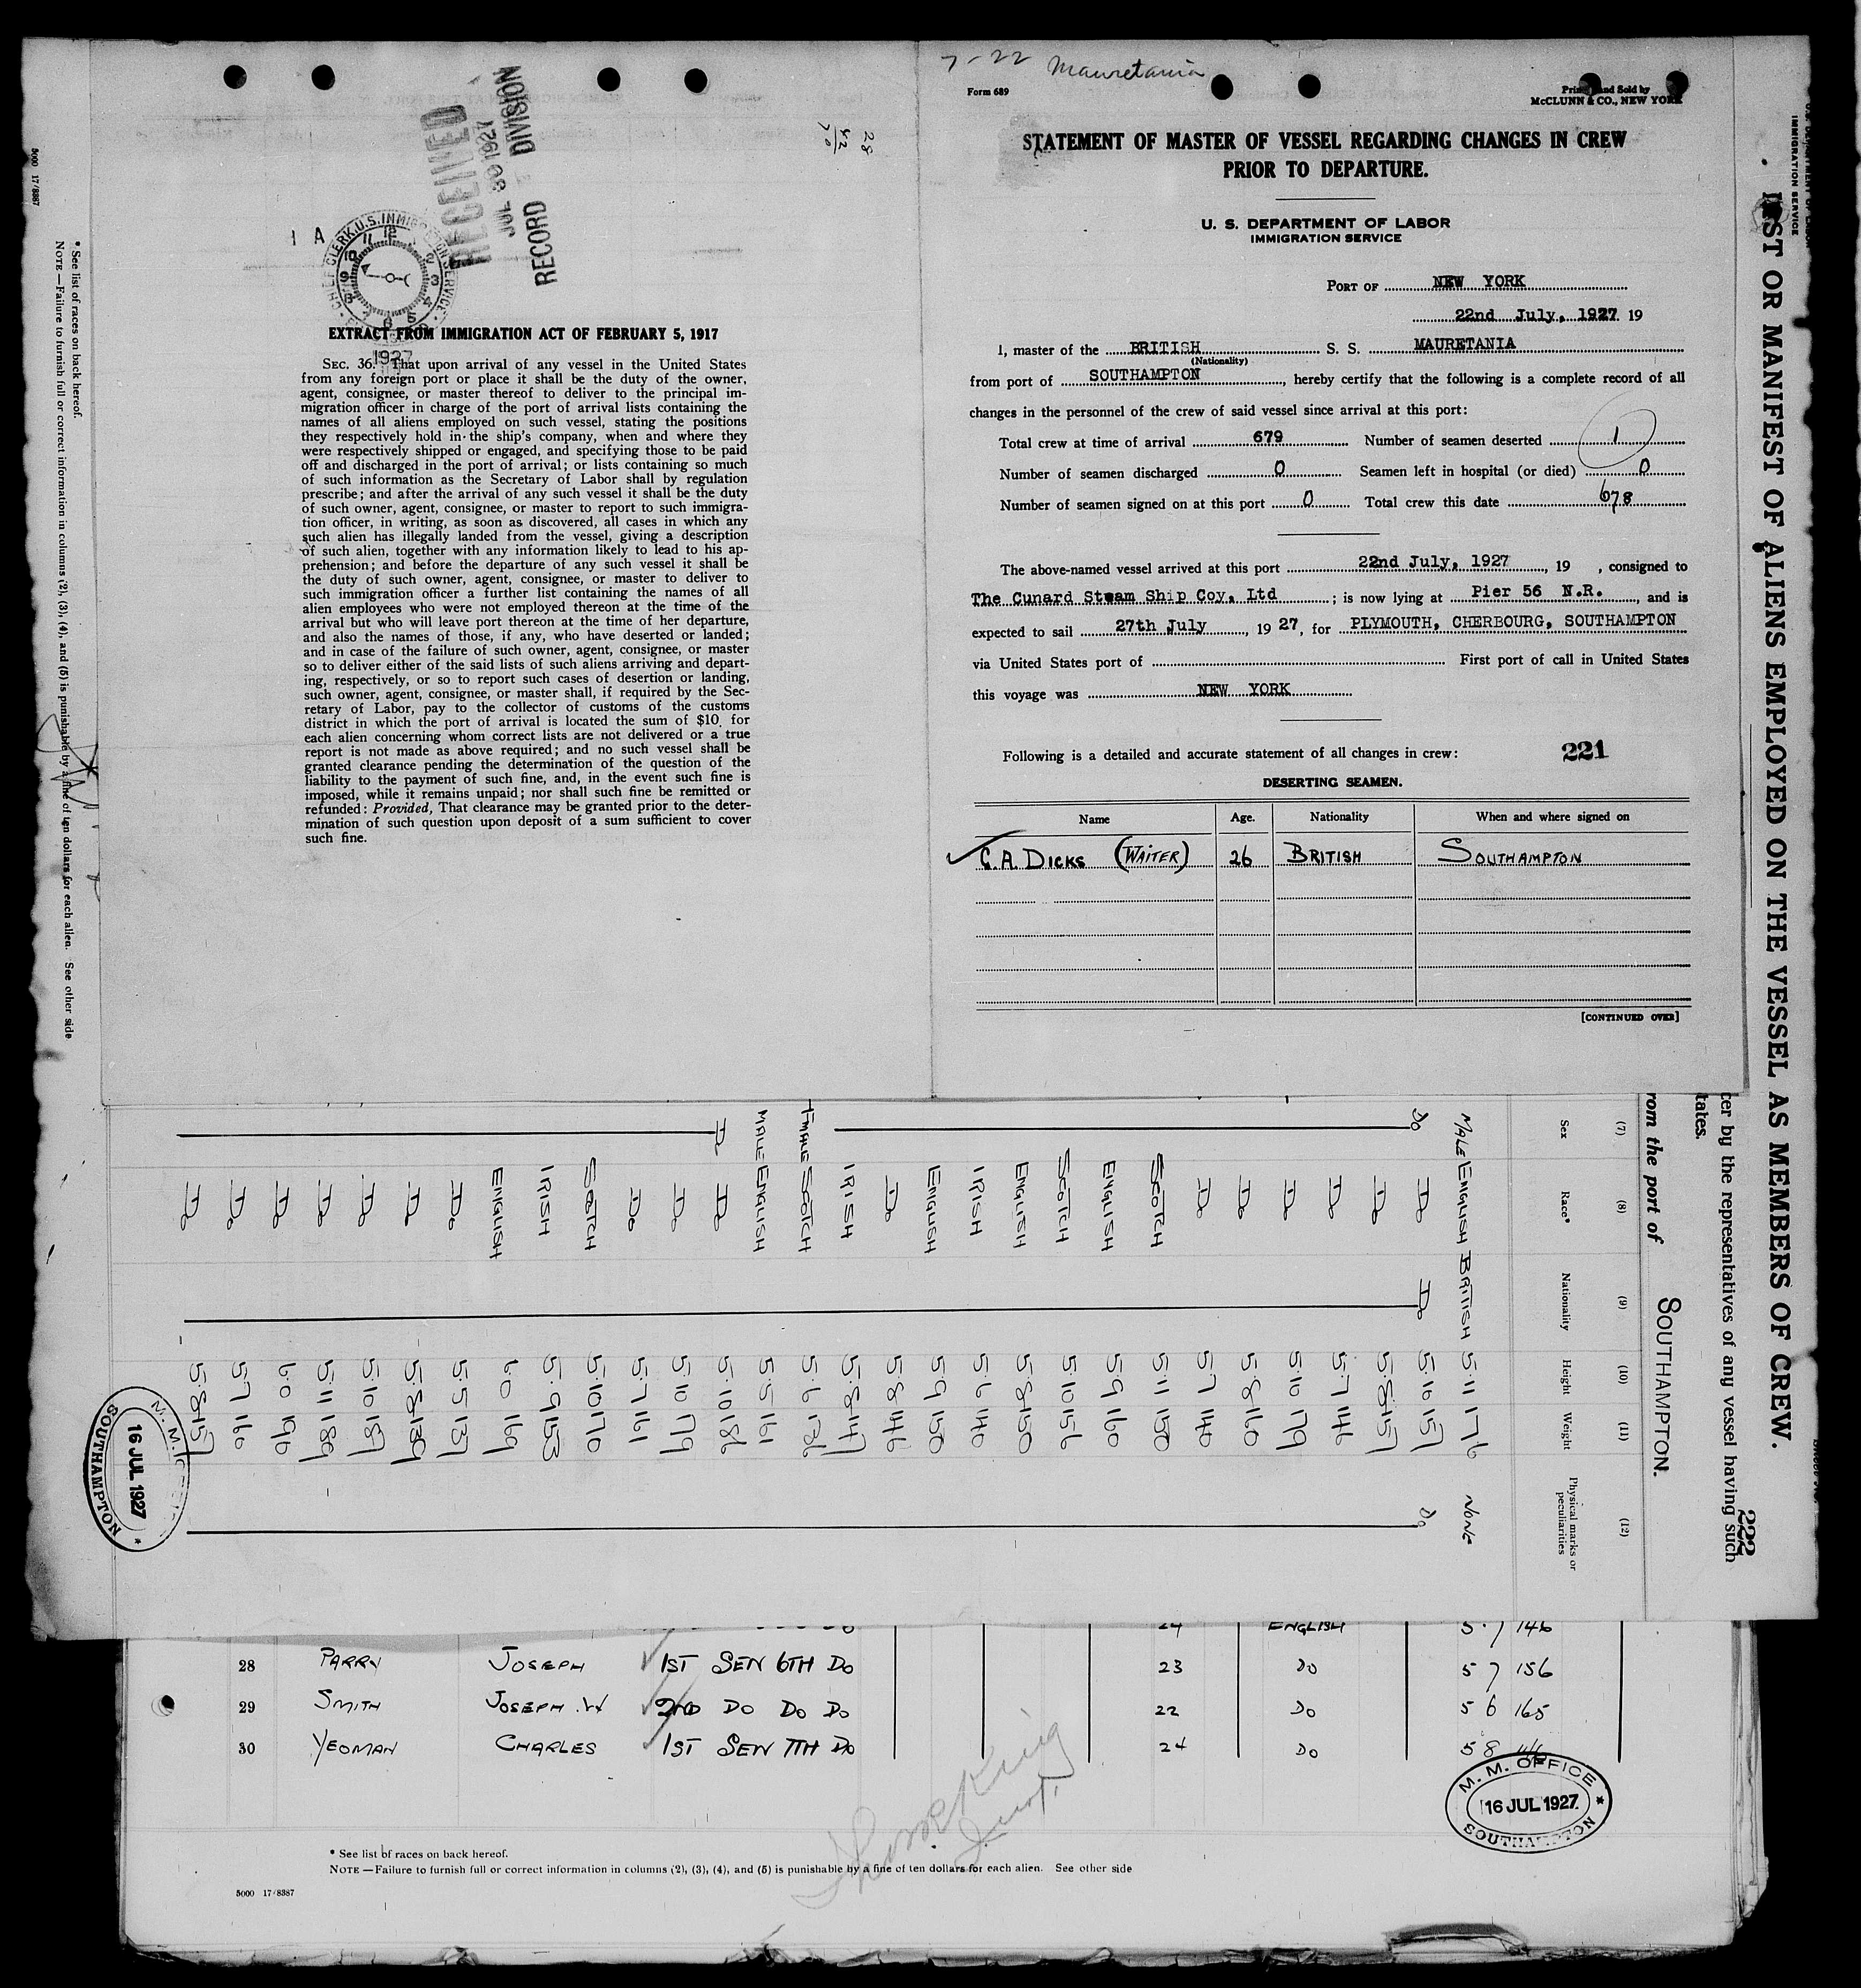 7-22 Mauretania
Form 689
McCLUNN & CO., NEW YORK
STATEMENT OF MASTER OF VESSEL REGARDING CHANGES IN CREW
PRIOR TO DEPARTURE.
U. S. DEPARTMENT OF LABOR
IMMIGRATION SERVICE
PORT OF NEW YORK
22nd July, 1927 19
I, master of the BRITISH S. S. MAURETANIA
(Nationality)
from port of SOUTHAMPTON, hereby certify that the following is a complete record of all
changes in the personnel of the crew of said vessel since arrival at this port:
Total crew at time of arrival 679 Number of seamen deserted 1
Number of seamen discharged 0 Seamen left in hospital (or died) 0
Number of seamen signed on at this port 0 Total crew this date 678
The above-named vessel arrived at this port 22nd July, 1927, 19 , consigned to
The Cunard Steam Ship Coy. Ltd ; is now lying at Pier 56 N.R., and is
expected to sail 27th July, 19 27, for PLYMOUTH, CHERBOURG, SOUTHAMPTON
via United States port of First port of call in United States
this voyage was NEW YORK
Following is a detailed and accurate statement of all changes in crew: 221
DESERTING SEAMEN.
Name Age. Nationality When and where signed on
C. A. DICKS (WAITER) 26 BRITISH SOUTHAMPTON
[CONTINUED OVER]
RECEIVED
JUL 30 1927
RECORD DIVISION
28
42
70
CHIEF CLERK, U.S. IMMIGRATION SERVICE
1927
EXTRACT FROM IMMIGRATION ACT OF FEBRUARY 5, 1917
SEC. 36. That upon arrival of any vessel in the United States
from any foreign port or place it shall be the duty of the owner,
agent, consignee, or master thereof to deliver to the principal im-
migration officer in charge of the port of arrival lists containing the
names of all aliens employed on such vessel, stating the positions
they respectively hold in the ship's company, when and where they
were respectively shipped or engaged, and specifying those to be paid
off and discharged in the port of arrival; or lists containing so much
of such information as the Secretary of Labor shall by regulation
prescribe; and after the arrival of any such vessel it shall be the duty
of such owner, agent, consignee, or master to report to such immigra-
tion officer, in writing, as soon as discovered, all cases in which any
such alien has illegally landed from the vessel, giving a description
of such alien, together with any information likely to lead to his ap-
prehension; and before the departure of any such vessel it shall be
the duty of such owner, agent, consignee, or master to deliver to
such immigration officer a further list containing the names of all
alien employees who were not employed thereon at the time of the
arrival but who will leave port thereon at the time of her departure,
and also the names of those, if any, who have deserted or landed;
and in case of the failure of such owner, agent, consignee, or master
so to deliver either of the said lists of such aliens arriving and depart-
ing, respectively, or so to report such cases of desertion or landing,
such owner, agent, consignee, or master shall, if required by the Sec-
retary of Labor, pay to the collector of customs of the customs
district in which the port of arrival is located the sum of $10 for
each alien concerning whom correct lists are not delivered or a true
report is not made as above required; and no such vessel shall be
granted clearance pending the determination of the question of the
liability to the payment of such fine, and, in the event such fine is
imposed, while it remains unpaid; nor shall such fine be remitted or
refunded: Provided, That clearance may be granted prior to the deter-
mination of such question upon deposit of a sum sufficient to cover
such fine.
IMMIGRATION SERVICE
LIST OR MANIFEST OF ALIENS EMPLOYED ON THE VESSEL AS MEMBERS OF CREW.
222
cer by the representatives of any vessel having such
tates.
rom the port of SOUTHAMPTON.
(7) (8) (9) (10) (11) (12)
Sex Race* Nationality Height Weight Physical marks or peculiarities
MALE ENGLISH BRITISH 5·11 176 NONE
Do Do Do 5·10 157 Do
Do 5·8 157
Do 5·7 146
Do 5·10 179
Do 5·8 160
Do 5·7 140
SCOTCH 5·11 150
ENGLISH 5·9 160
SCOTCH 5·10 156
ENGLISH 5·8 150
IRISH 5·6 140
ENGLISH 5·9 150
Do 5·8 146
IRISH 5·8 147
FMALE SCOTCH 5·6 136
MALE ENGLISH 5·5 161
Do Do 5·10 186
Do 5·10 179
Do 5·7 161
SCOTCH 5·10 170
IRISH 5·9 153
ENGLISH 6·0 169
Do 5·5 137
Do 5·8 139
Do 5·10 187
Do 5·11 189
Do 6·0 196
Do 5·7 160
Do 5·8 157
M.M. OFFICE
16 JUL 1927
SOUTHAMPTON
* See list of races on back hereof.
NOTE—Failure to furnish full or correct information in columns (2), (3), (4), and (5) is punishable by a fine of ten dollars for each alien. See other side
5000 17/8387
24 ENGLISH 5·7 146
28 PARRY JOSEPH 1ST SEN 6TH DO 23 DO 5 7 156
29 SMITH JOSEPH .W 2ND DO DO DO 22 DO 5 6 165
30 YEOMAN CHARLES 1ST SEN 7TH DO 24 DO 5 8
M. M. OFFICE
16 JUL 1927
SOUTHAMPTON
* See list of races on back hereof.
NOTE—Failure to furnish full or correct information in columns (2), (3), (4), and (5) is punishable by a fine of ten dollars for each alien. See other side
5000 17/8387